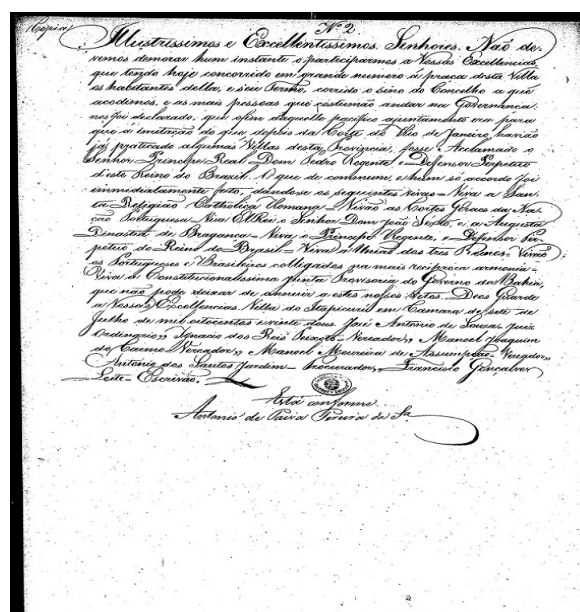 (Copia)
Nº 2
Illustrissimos e Excellentissimos Senhores. Não de-
vemos demorar hum instante o participarmos a Vossas Excellencias,
que tendo hoje concorrido em grande numero á praça desta Villa
os habitantes della, e seu Termo, corrido o sino do Concelho a que
acodimos, e as mais pessoas que costumão andar na Governança:
nos foi declarado, que o fim daquelle pacifico ajuntamento era para
que á imitação do que depois da Corte do Rio de Janeiro, havião
já praticado algumas Villas desta Provincia, fosse Acclamado o
Senhor Principe Real Dom Pedro Regente e Defensor Perpetuo
d'este Reino do Brazil. O que de commum, e hum só accordo foi
immidiatamente feito, dandose os seguintes vivas = Viva a San-
ta Religião Catholica Romana = Vivão as Cortes Geraes da Na-
ção Portuguesa = Viva ElRei o Senhor Dom João Sexto, e a Augusta
Dinastia de Bragança = Viva o Principe Regente, e Defensor Per-
petuo do Reino do Brasil = Viva a União dos tres Reinos = Vivão
os Portugueses e Brasileiros colligados na mais reciproca armonia =
Viva a Constitucionalissima Junta Provisoria do Governo da Bahia,
que não pode deixar de annuir a estes nossos Votos. Deos Guarde
a Vossas Excellencias Villa do Itapicurú em Camara de sete de
Julho de mil oitocentos e vinte dous José Antonio de Souza, Juiz
Ordinario,, Ignacio dos Reis Peixoto = Vereador,, Manoel Joaquim
do Carmo Vereador,, Manoel Moureira de Assumpção = Veriador,,
Antonio dos Santos Jardim = Procurador,, Francisco Gonçalves
Leite = Escrivão.
Está conforme
Antonio de Paiva Pereira da Sª